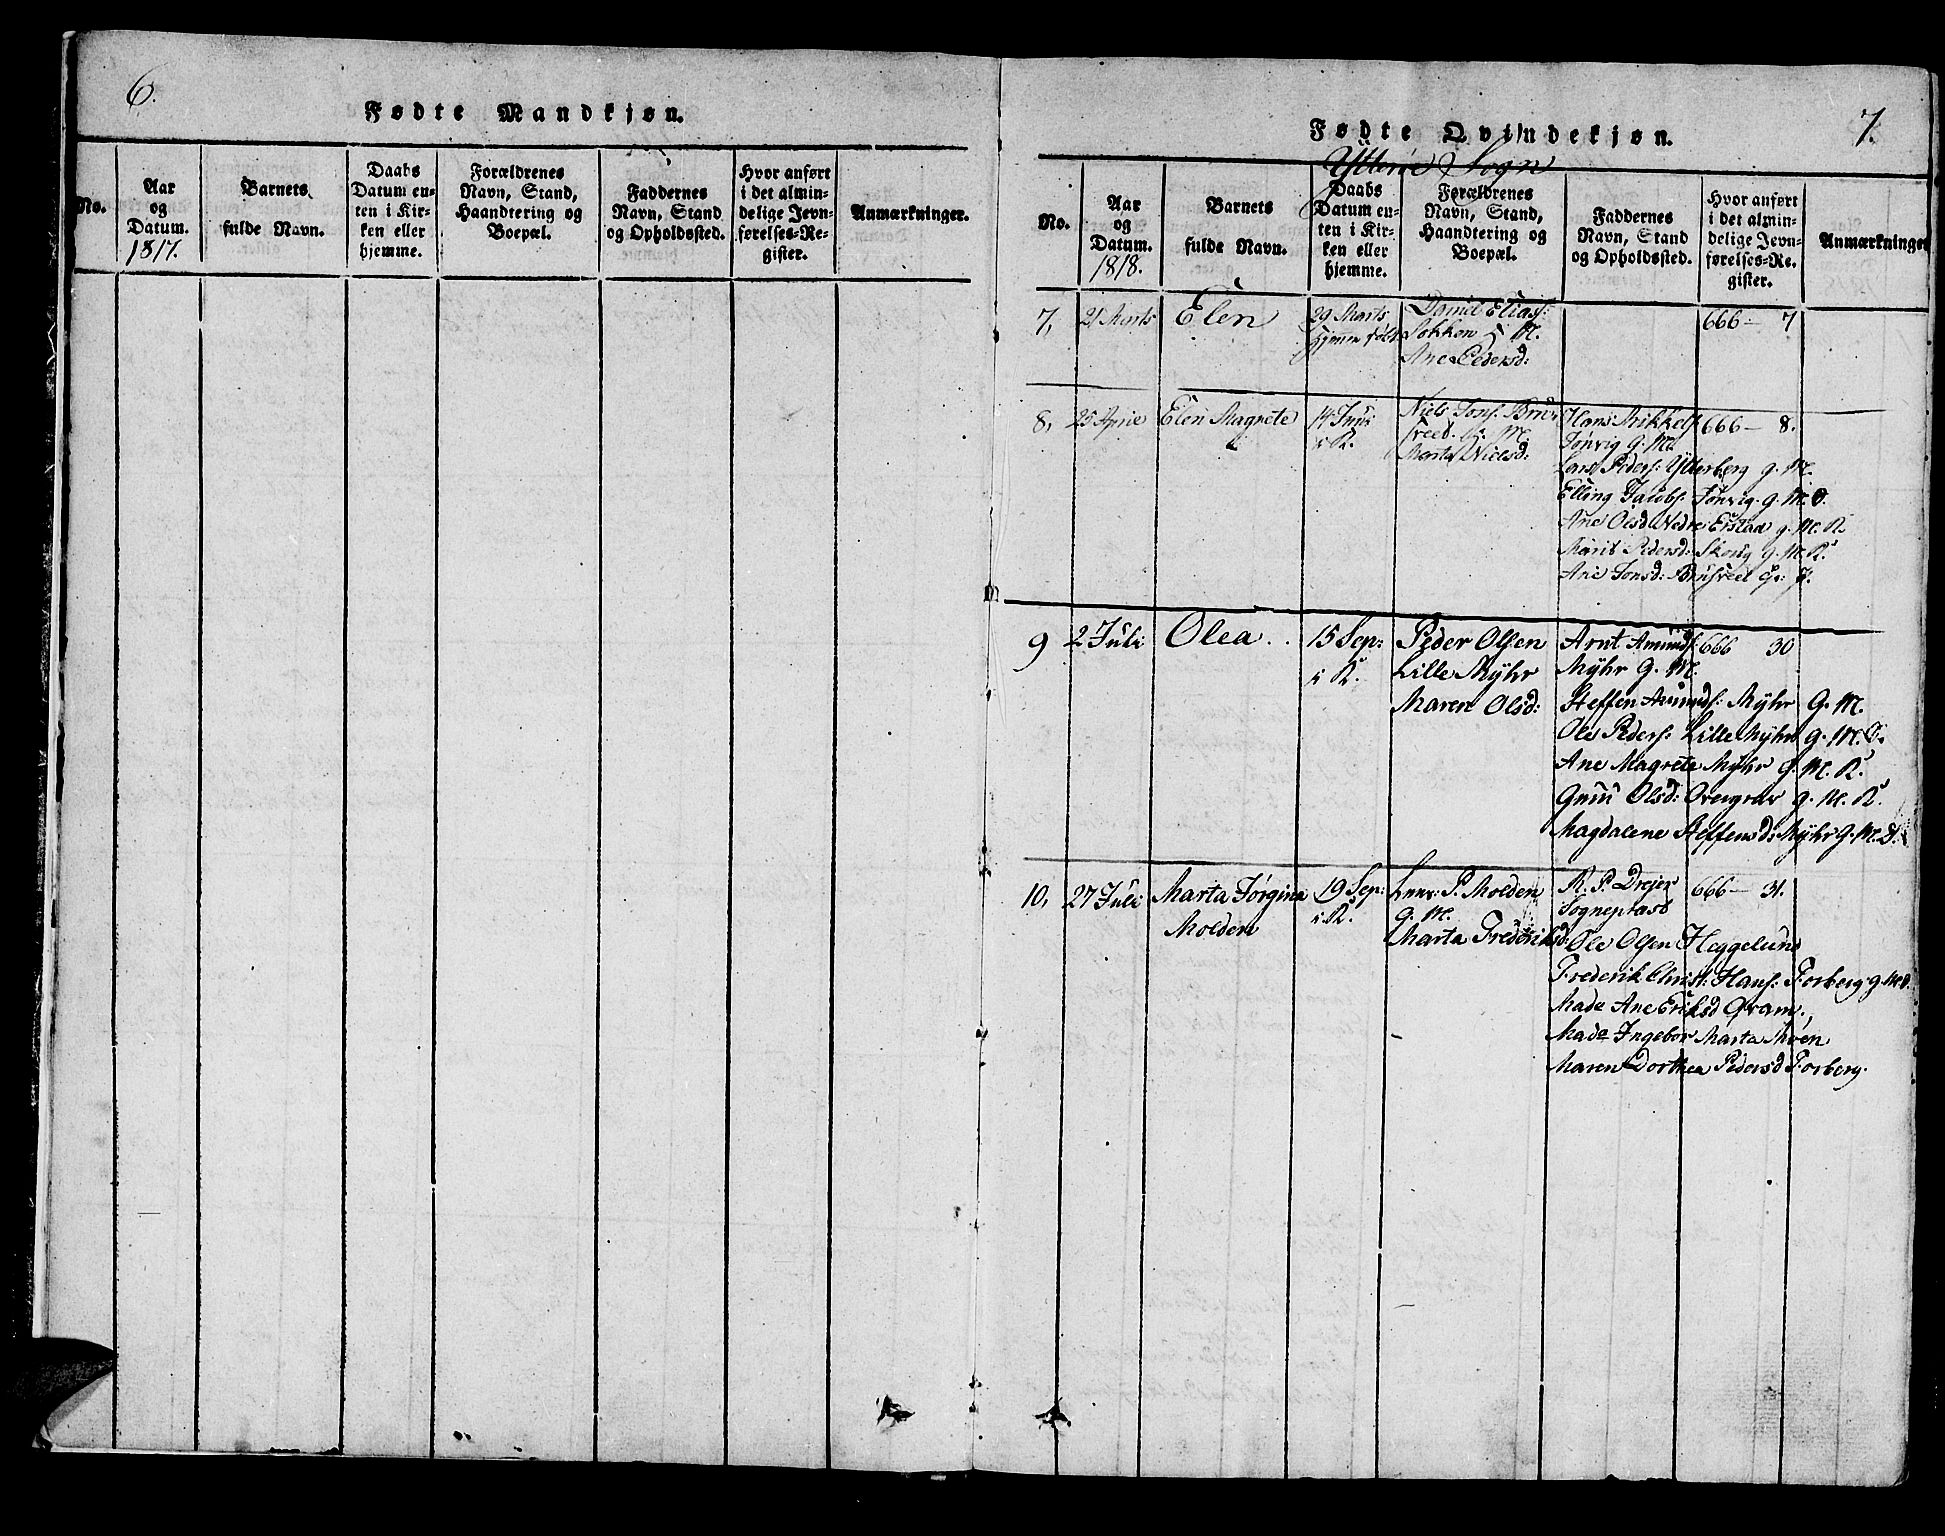 6.
Fødte Mandkjøn.
No.
Aar
og
Datum.
1817.
Barnets
fulde Navn.
Daabs
Datum en-
ten i Kir-
ken eller
hjemme.
Forældrenes
Navn, Stand,
Haandtering og
Boepæl.
Faddernes
Navn, Stand
og Opholdssted.
Hvor anført
i det almin-
delige Jevn-
førelses-Re-
gister.
Anmærkninger.
7.
Fødte Qvindekjøn.
Ytterøe Sogn
No.
Aar
og
Datum.
1818.
Barnets
fulde Navn.
Daabs
Datum en-
ten i Kir-
ken eller
hjemme.
Forældrenes
Navn, Stand,
Haandtering og
Boepæl.
Faddernes
Navn, Stand
og Opholdssted.
Hvor anført
i det almin-
delige Jevn-
førelses-Re-
gister.
Anmærkninger
7, 21 Marts
Elen
29 Marts
hjemme døbt
Daniel Elias:
Sokken M.
Ane Pedersd:
666— 7
8, 25 April
Elen Magrete
14 Juni
i K.
Niels Jons: Brus
sveet M.
Marta Nielsd:
Hans Mikkels:
Tønvig G. M.
Lars Peders: Ytterberg g. M.
Elling Jacobs: Tønvig. g. M. D.
Ane Olsd Nedre Erstaa g. M. K.
Marit Pedersd: Skevig g. M. K.
Ane Jonsd: Brusveet P.
666— 8.
9 2 Juli
Olea.
15 Sep:
i K.
Peder Olsen
Lille Myhr
Maren Olsd:
Arnt Amunds:
Myhr G. M.
Steffen Amunds: Myhr G. M.
Ole Peders: Lille Myhr g. M. D.
Ane Magrete Myhr g. M. K.
Guru Olsd: Overgrav g. M. K.
Magdalene Steffensd: Myhr g. M. D.
666 30
10, 27 Juli
Marta Jørgina
Molden
19 Sep:
i K.
P. Molden
g. M.
Marta Frederiksd:
R. P. Drejer
Sognepræst
Ole Olsen Heggelund
Frederik Christ: Hans: Forberg g. M. D.
Made Ane Eriksd Qvam.,
Made Ingebor Marta Moen
Maren Dorthea Pedersd Forberg.
666— 31.